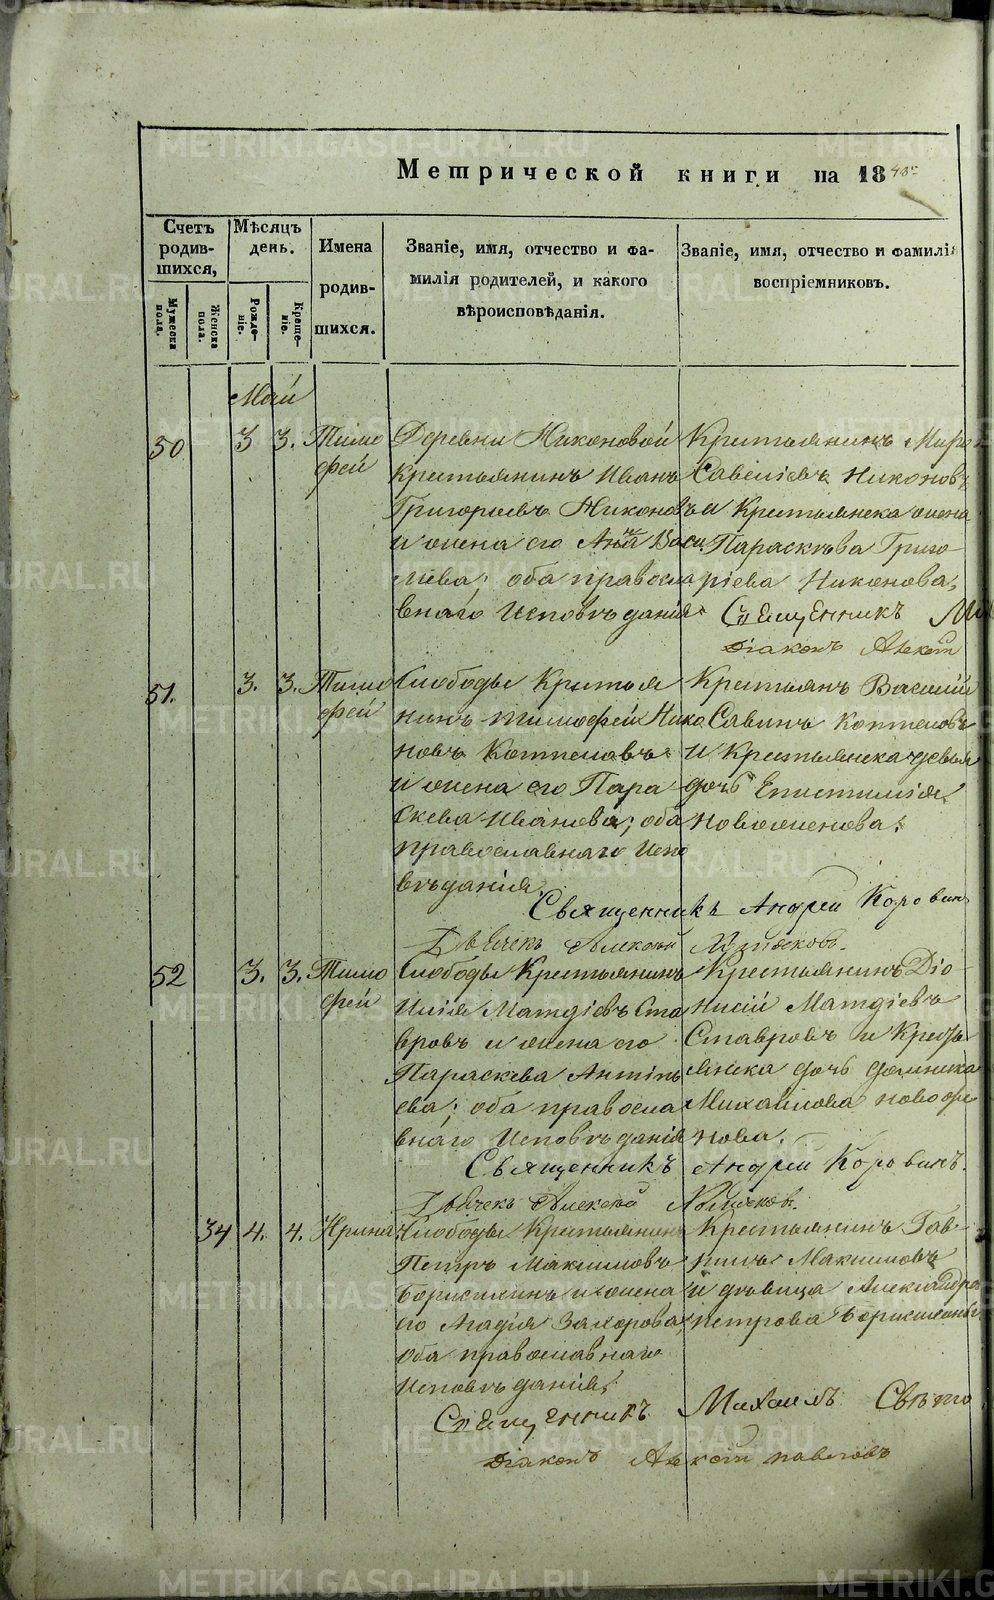 METRIKI.GASO-URAL.RU
Метрической книги на 18
Счетъ родив-шихся,
Мужеска пола.
Женска пола.
Мѣсяцъ день.
Рожде-ніе.
Креще-ніе.
Имена родив-шихся.
Званіе, имя, отчество и фа-
милія родителей, и какого
вѣроисповѣданія.
Званіе, имя, отчество и фамилія
воспріемниковъ.
Май
50 3 3. Тимо
фей
Деревни Никоновой
крестьянинъ Иванъ
Григорьевъ Никоновъ
и жена его Анна Васи
льева; оба правосла
внаго Исповѣданія
Крестьянинъ
Савеліевъ Никоновъ
и Крестьянска жена
Параскѣва Григо
ріева Никонова,
Священникъ
Діаконъ Алексій
51. 3. 3. Тимо
фей
Слободы Крестья
нинъ Тимофей Нико
новъ Коптеловъ
и жена его Пара
скева Иванова; оба
православнаго Испо
вѣданія.
Крестьянъ Василій
Савинъ Коптеловъ
и Крестьянска девья
дочь Епистимія
Новоженова.
Священникъ Андрей Коровин
Дьячекъ Алексѣй
52 3. 3. Тимо
фей
Слободы Крестьянинъ
Илія Матѳіевъ Ста
вровъ и жена его
Параскева Антипь
ева; оба правосла
внаго Исповѣданія
Крестьянинъ Діо
нисій Матѳіевъ
Ставровъ и Кресть
янска дочь Домника
Михайлова Новоже
нова.
Священникъ Андрей Коровинъ.
Дьячекъ Алексѣй
34 4. 4. Ирина
Слободы Крестьянинъ
Петръ Максимовъ
Борисихинъ и жена
его Агафія Захорова,
оба православнаго
Исповѣданія,
Крестьянинъ Гав-
рилъ Максимовъ
и дѣвица Александра
Петрова Борисихины
Священникъ Михаилъ Свѣто
Діаконъ Алексій Павловъ